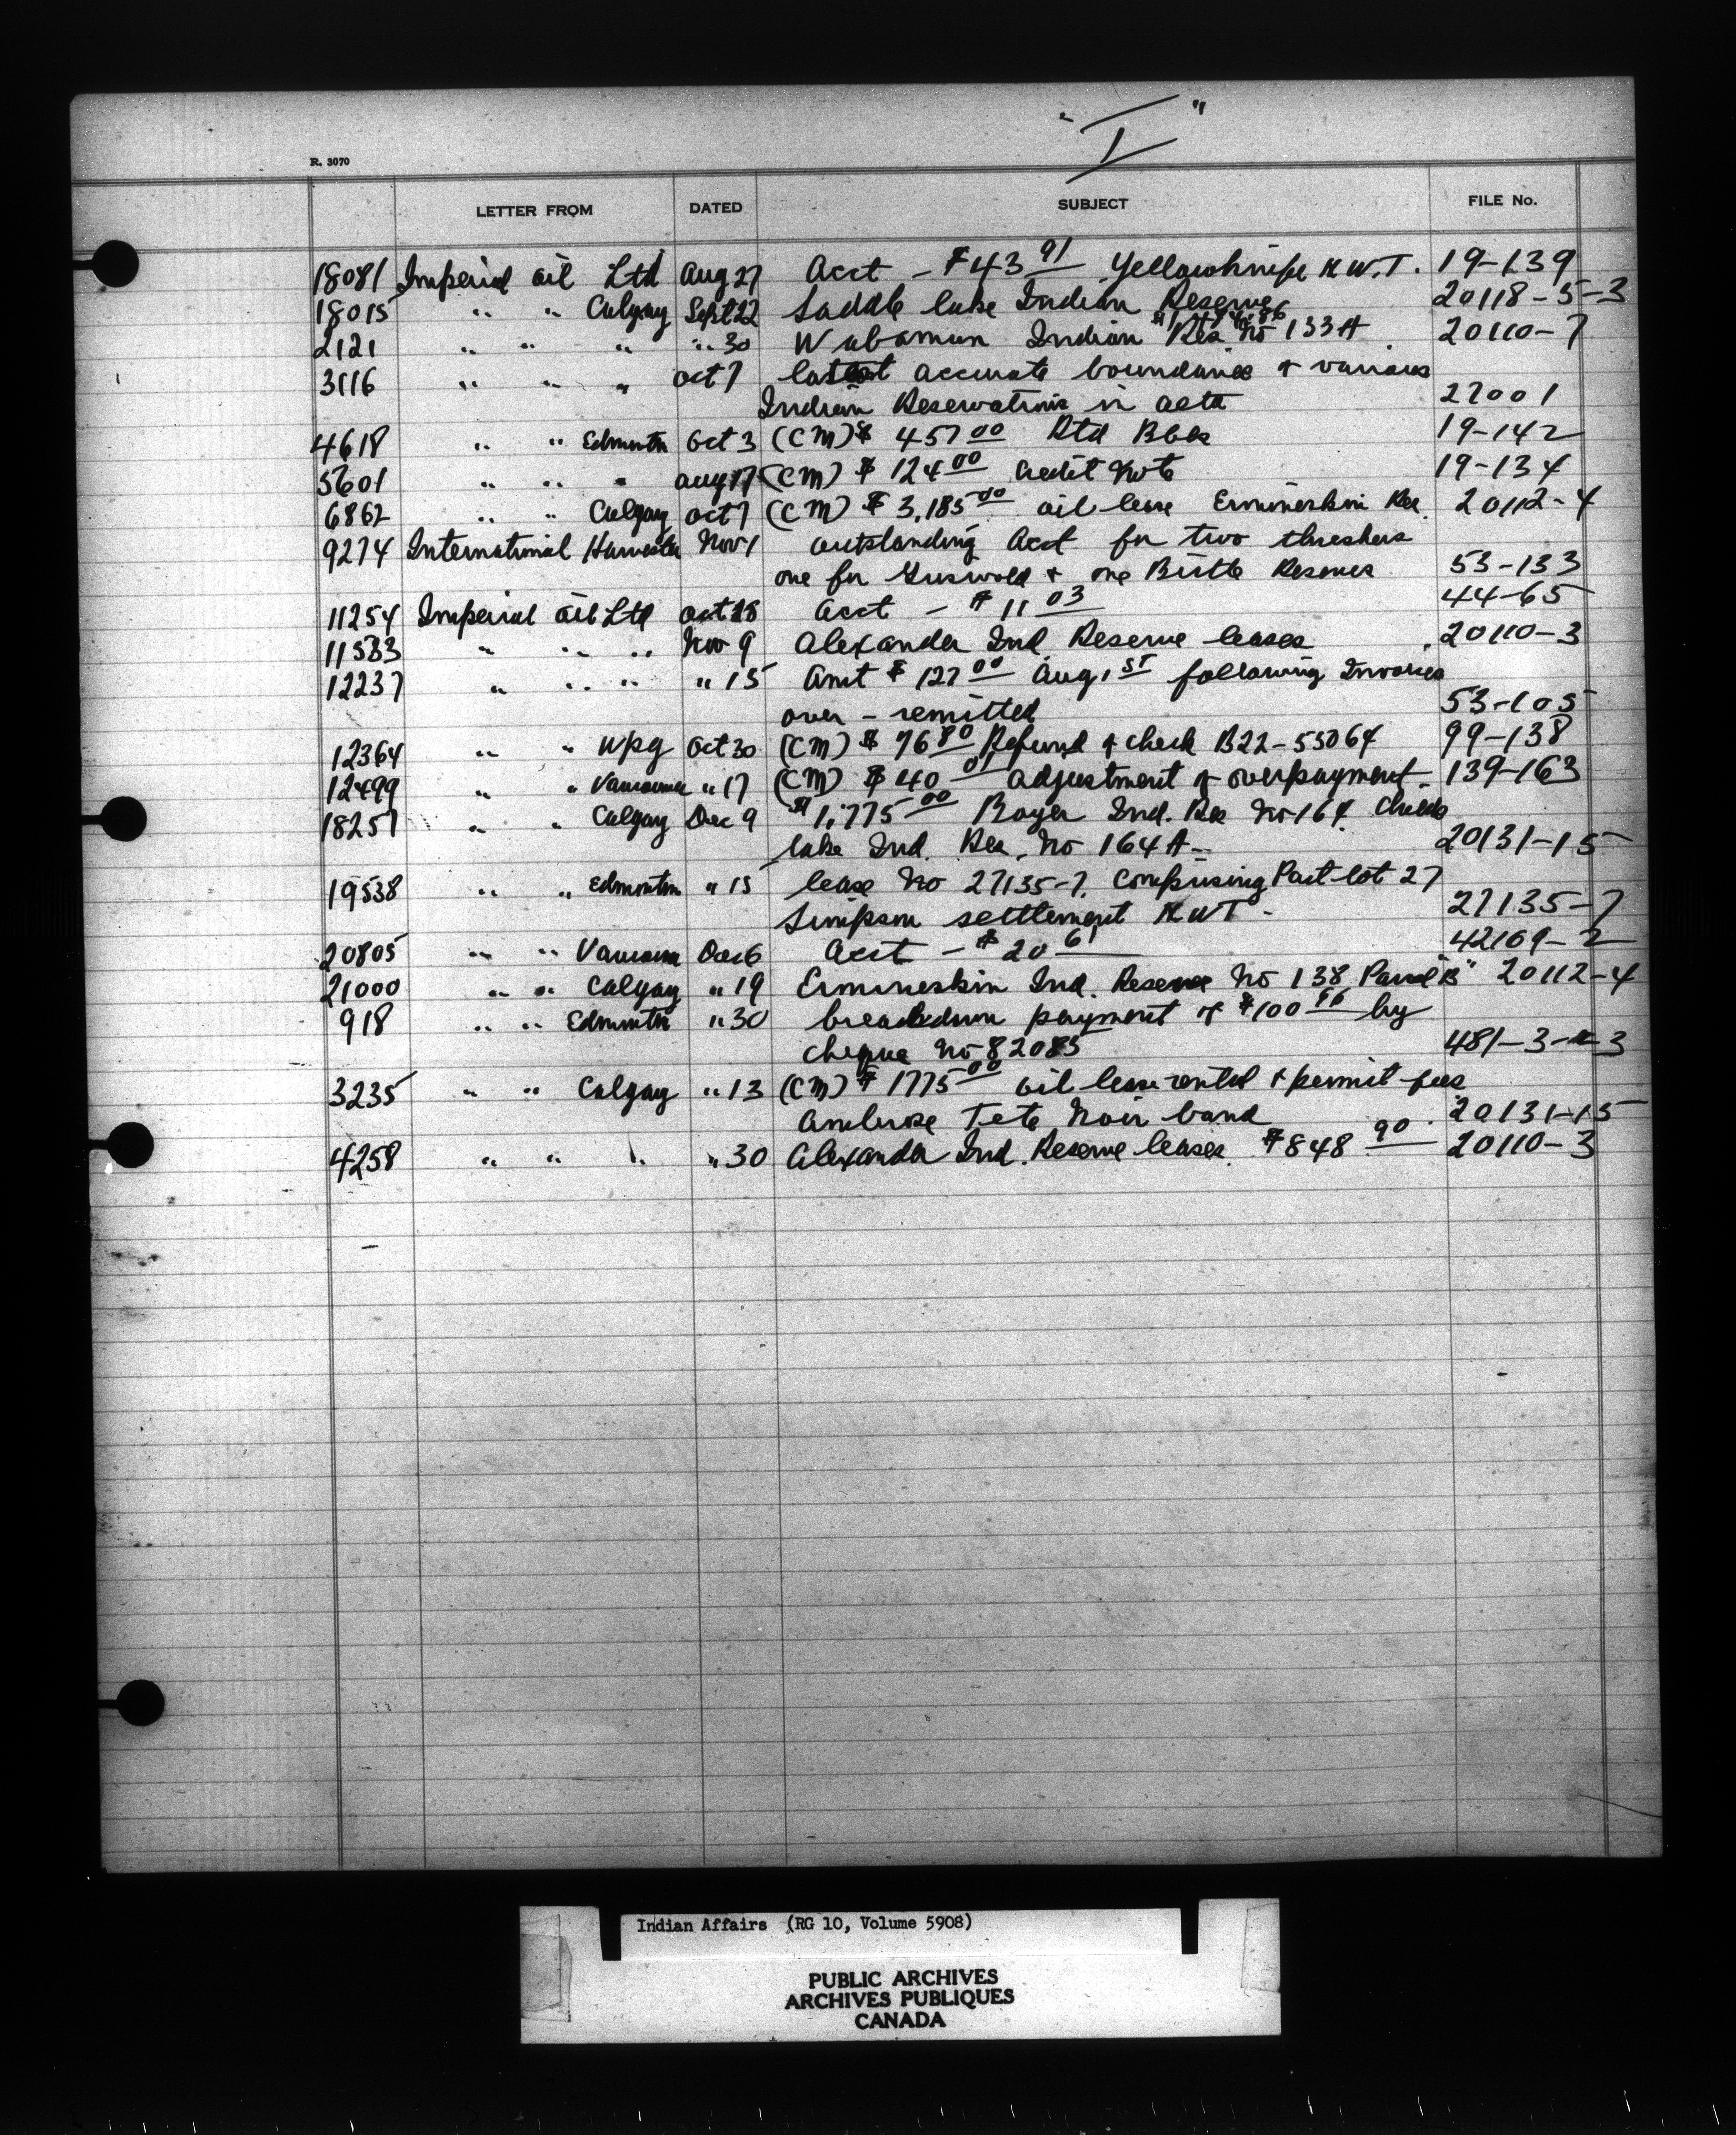 " I "
R. 3070
LETTER FROM DATED SUBJECT FILE No.
18081 Imperial Oil Ltd Aug 27 Acct - $43 91 Yellowknife N.W.T. 19-139
18015 " " Calgary Sept 22 Saddle lake Indian Reserve 20118-5-3
2121 " " " " 30 Wabamun Indian Res No 133A 20110-7
3116 " " " Oct 7 latest accurate boundaries of various
Indian Reservations in 27001
4618 " " Edmonton Oct 3 (CM) $ 457 00 Rtd Bbls 19-142
5601 " " " Aug 17 (CM) $ 124 00 Credit Note 19-134
6862 " " Calgary Oct 7 (CM) $ 3,185 00 oil lease Ermineskin Res. 20112-4
9274 International Harvester Nov 1 outstanding Acct for two threshers
one for Griswold & one Birtle Reserves 53-133
11254 Imperial Oil Ltd Oct 28 Acct - $ 11 03 44-65
11533 " " " Nov 9 Alexander Ind. Reserve leases 20110-3
12237 " " " " 15 Amt $ 127 00 Aug 1st following Invoices
over - remitted 53-105
12364 " " Wpg Oct 30 (CM) $ 76 80 Refund of check B22-55064 99-138
12499 " " Vancouver " 17 (CM) $ 40 01 adjustment of overpayment 139-163
18257 " " Calgary Dec 9 $1,775 00 Boyer Ind. Res No 164. Childs
lake Ind. Res. No 164A - 20131-15
19538 " " Edmonton " 15 lease No 27135-7. Comprising Part lot 27
Simpson settlement N.W.T - 27135-7
20805 " " Vancouver Dec 6 Acct - $ 20 61 42109-2
21000 " " Calgary " 19 Ermineskin Ind. Reserve No 138 Parcel "B" 20112-4
918 " " Edmonton " 30 breakdown payment of $100 by
cheque No 82085 481-3-3
3235 " " Calgary " 13 (CM) $ 1775 00 oil lease rental & permit fees
Ambrose Tete Noir band. 20131-15
4258 " " " " 30 Alexander Ind. Reserve leases. $848 90 20110-3
Indian Affairs (RG 10, Volume 5908)
PUBLIC ARCHIVES
ARCHIVES PUBLIQUES
CANADA